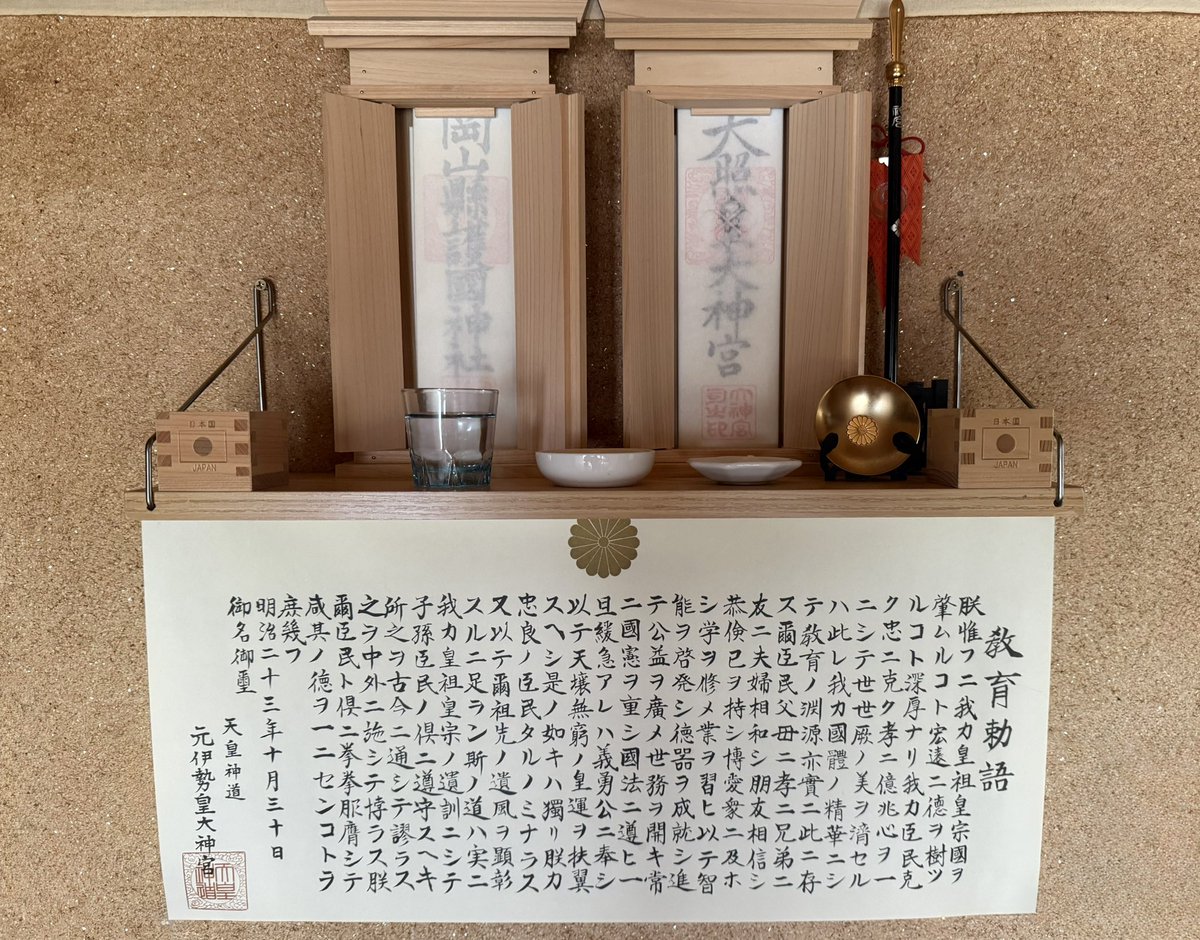 天照皇大神宮
岡山縣護國神社
日本国
JAPAN
日本国
JAPAN
教育勅語
朕惟フニ我カ皇祖皇宗國ヲ
肇ムルコト宏遠ニ徳ヲ樹ツ
ルコト深厚ナリ我カ臣民克
ク忠ニ克ク孝ニ億兆心ヲ一
ニシテ世世厥ノ美ヲ濟セル
ハ此レ我カ國體ノ精華ニシ
テ教育ノ淵源亦實ニ此ニ存
ス爾臣民父母ニ孝ニ兄弟ニ
友ニ夫婦相和シ朋友相信シ
恭倹已ヲ持シ博愛衆ニ及ホ
シ学ヲ修メ業ヲ習ヒ以テ智
能ヲ啓発シ徳器ヲ成就シ進
テ公益ヲ廣メ世務ヲ開キ常
ニ國憲ヲ重シ國法ニ遵ヒ一
旦緩急アレハ義勇公ニ奉シ
以テ天壌無窮ノ皇運ヲ扶翼
スヘシ是ノ如キハ獨リ朕カ
忠良ノ臣民タルノミナラス
又以テ爾祖先ノ遺風ヲ顕彰
スルニ足ラン斯ノ道ハ実ニ
我カ皇祖皇宗ノ遺訓ニシテ
子孫臣民ノ倶ニ遵守スヘキ
所之ヲ古今ニ通シテ謬ラス
之ヲ中外ニ施シテ悖ラス朕
爾臣民ト倶ニ拳拳服膺シテ
咸其ノ徳ヲ一ニセンコトラ
庶幾フ
明治二十三年十月三十日
御名御璽
天皇神道
元伊勢皇大神宮